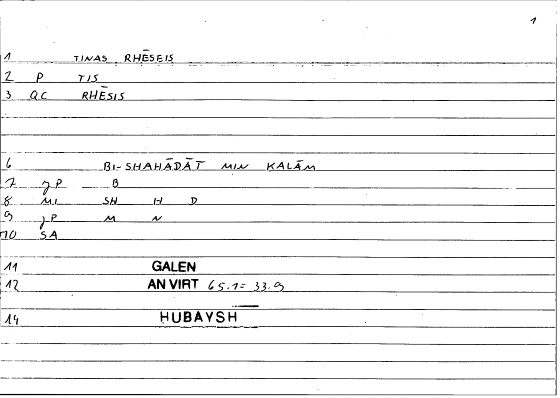 1
1 TINAS RHĒSEIS
2 P TIS
3 QC RHĒSIS
6 BI-SHAHĀDĀT MIN KALĀM
7 JP B
8 MI SH H D
9 JP M N
10 SA
11 GALEN
12 AN VIRT 65.1= 33.9
14 HUBAYSH